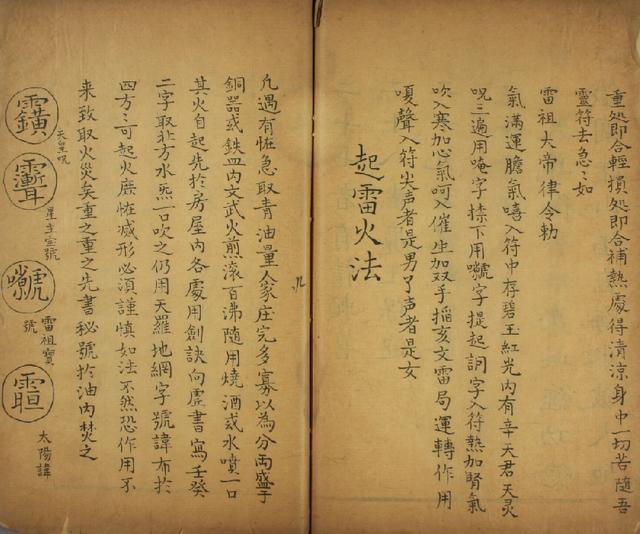 重処即合輕損処即合補熱處得清涼身中一切苦隨吾
靈符去急〻如
雷祖大帝律令勅
氣滿運膽氣嘻入符中存碧玉紅光內有辛天君天灵
呪三遍用唵字捺下用字提起訶字入符熱加腎氣
吹入寒加心氣呵入催生加双手搯亥文雷局運轉作用
嗄聲入符尖声者是男了声者是女
起雷火法
凢遇有恠急取青油量人家庄宅多寡以為分両盛于
銅器或鉄皿內文武火煎滚百沸隨用燒酒或水噴一口
其火自起先於房屋內各處用劍訣向虛書寫壬癸
二字取北方水炁一口吹之仍用天羅地網字號諱布於
四方〻可起火庶恠滅形必須謹慎如法不然恐作用不
来致取火災矣重之重之先書秘號於油內焚之
天皇呪
星主宝號
雷祖寶號
太陽諱